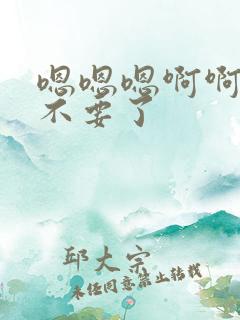 嗯嗯嗯啊啊
不要了
邱大宗
未经同意禁止转载